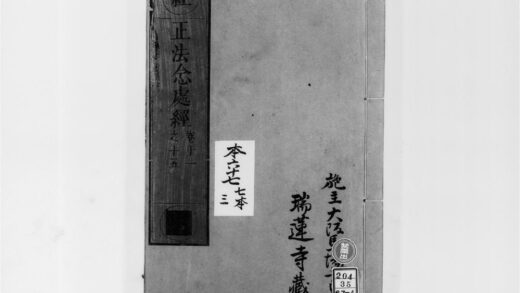 正法念處經 卷十一之十五
本六十七
七本
三
施主大阪
瑞蓮寺藏
204
35